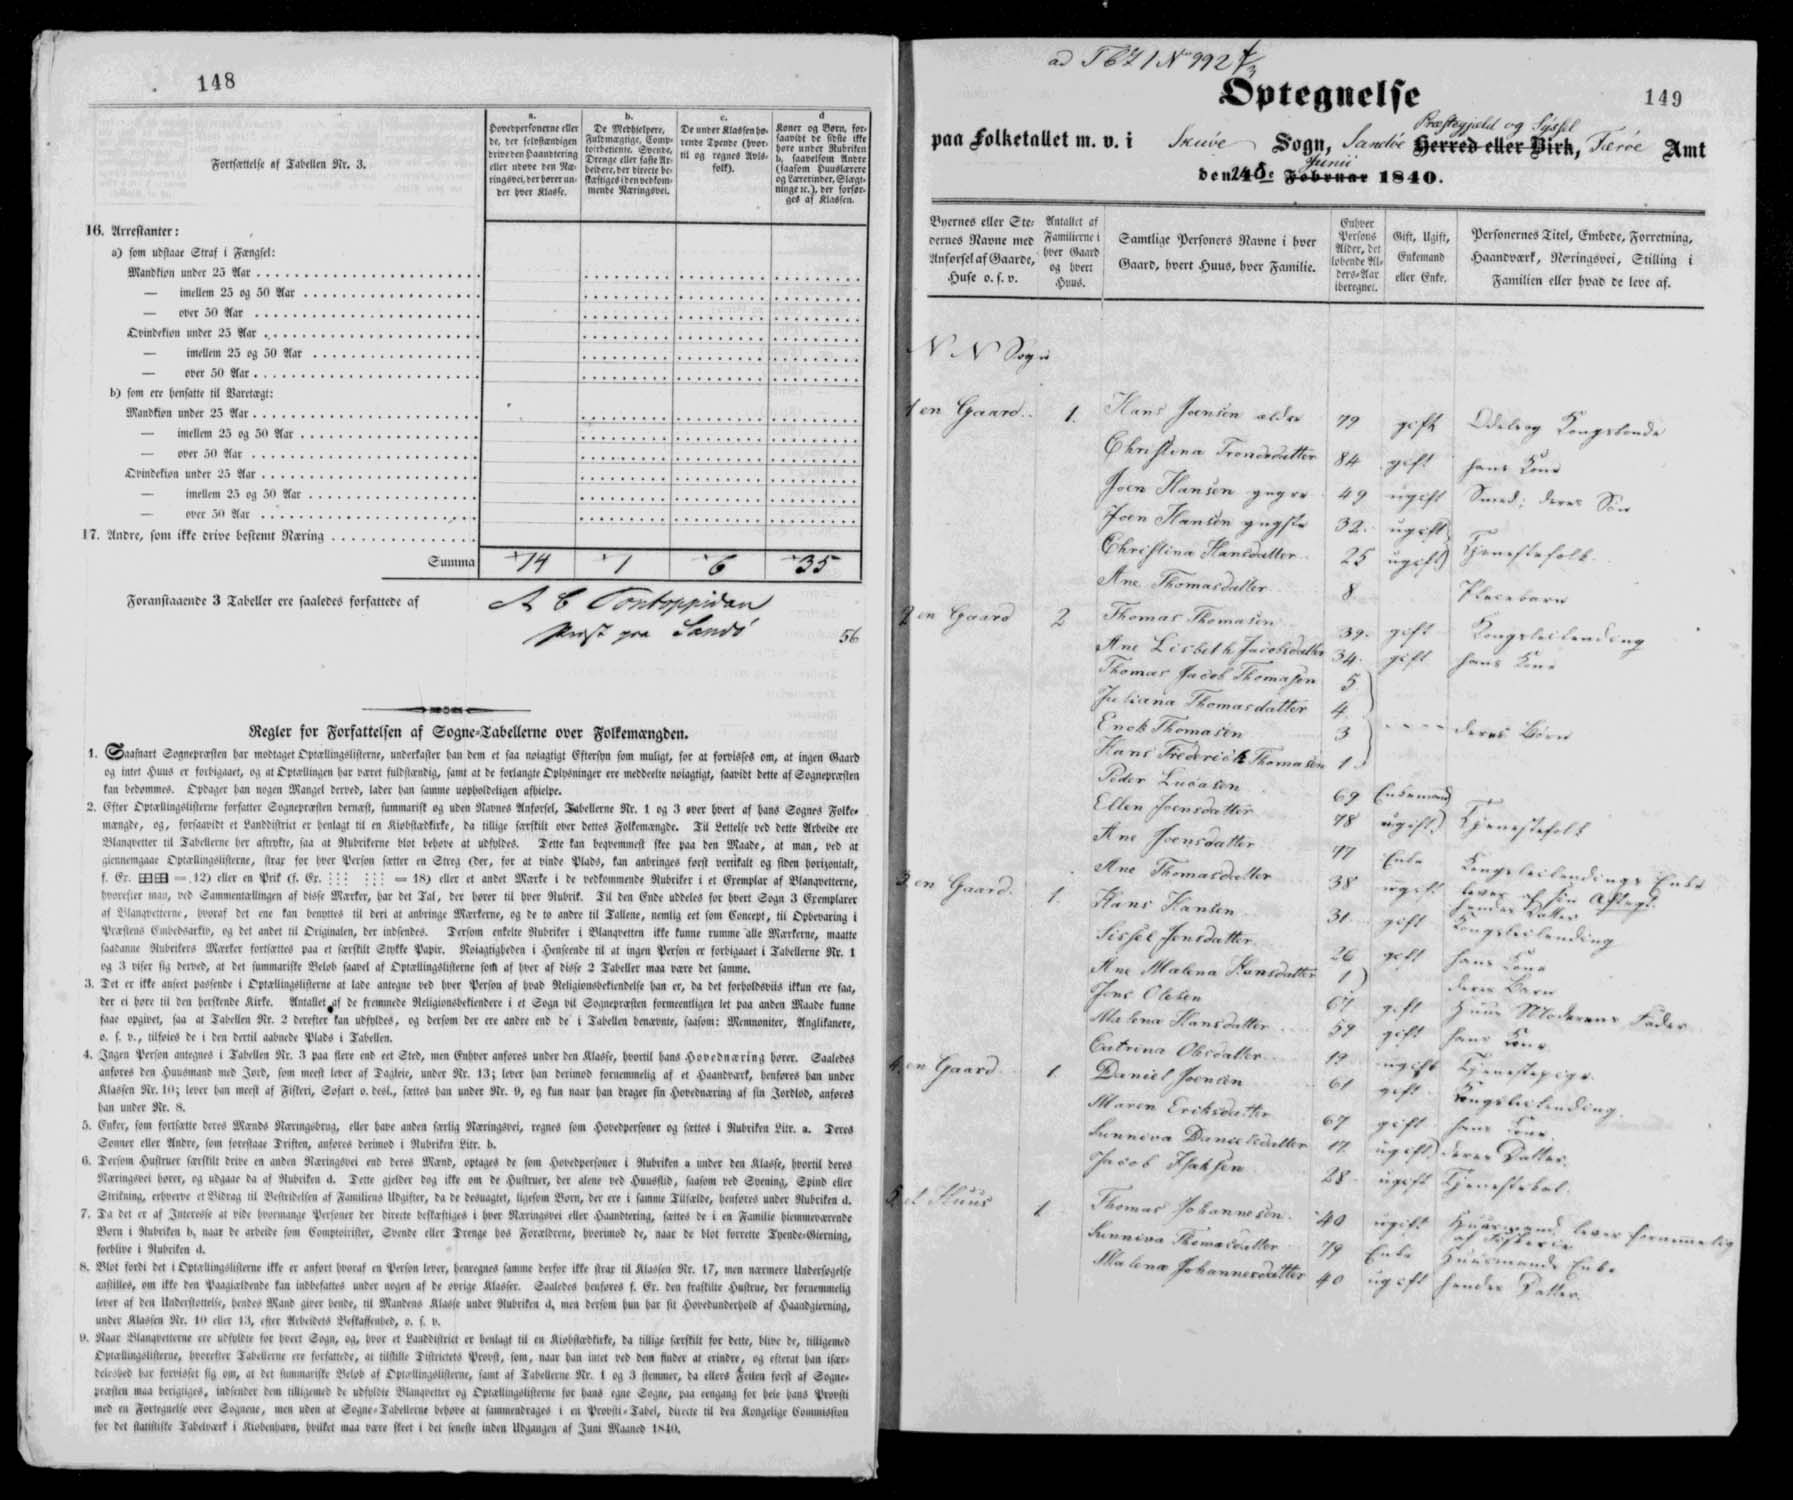 148
Fortsættelse af Tabellen Nr. 3.
a.
Hovedpersonerne eller
de, der selvstændigen
drive den Haandtering
eller udøve den Næ-
ringsvei, der hører un-
der hver Klasse.
b.
De Medhjelpere,
Fuldmægtige, Comp-
toirbetiente, Svende,
Drenge eller faste Ar-
beidere, der directe be-
skæftiges i den vedkom-
mende Næringsvei.
c.
De under Klassen hø-
rende Tyende (hvor-
til og regnes Avls-
folk).
d
Koner og Børn, for-
saavidt de sidste ikke
høre under Rubriken
b, saavelsom Andre
(saasom Huuslærere
og Lærerinder, Slægt-
ninge ıc.), der forsør-
ges af Klassen.
16. Arrestanter:
a) som udstaae Straf i Fængsel:
Mandkiøn under 25 Aar
— imellem 25 og 50 Aar
— over 50 Aar
Qvindekiøn under 25 Aar
— imellem 25 og 50 Aar
— over 50 Aar
b) som ere hensatte til Varetægt:
Mandkiøn under 25 Aar
— imellem 25 og 50 Aar
— over 50 Aar
Qvindekiøn under 25 Aar
— imellem 25 og 50 Aar
— over 50 Aar
17. Andre, som ikke drive bestemt Næring
Summa 14 1 6 35
Foranstaaende 3 Tabeller ere saaledes forfattede af A C Pontoppidan
Præst paa Sandö 56
Regler for Forfattelsen af Sogne-Tabellerne over Folkemængden.
1. Saasnart Sognepræsten har modtaget Optællingslisterne, underkaster han dem et saa nøiagtigt Eftersyn som muligt, for at forvisses om, at ingen Gaard
og intet Huus er forbigaaet, og at Optællingen har været fuldstændig, samt at de forlangte Oplysninger ere meddeelte nøiagtigt, saavidt dette af Sognepræsten
kan bedømmes. Opdager han nogen Mangel derved, lader han samme uopholdeligen afhielpe.
2. Efter Optællingslisterne forfatter Sognepræsten dernæst, summarisk og uden Navnes Anførsel, Tabellerne Nr. 1 og 3 over hvert af hans Sognes Folke-
mængde, og, forsaavidt et Landdistrict er henlagt til en Kiøbstædkirke, da tillige særskilt over dettes Folkemængde. Til Lettelse ved dette Arbeide ere
Blanqvetter til Tabellerne her aftrykte, saa at Rubrikerne blot behøve at udfyldes. Dette kan beqvemmest skee paa den Maade, at man, ved at
giennemgaae Optællingslisterne, strax for hver Person sætter en Streg (der, for at vinde Plads, kan anbringes først vertikalt og siden horizontalt,
f. Ex. = 12) eller en Prik (f. Ex. ⋮⋮⋮ ⋮⋮⋮ = 18) eller et andet Mærke i de vedkommende Rubriker i et Exemplar af Blanqvetterne,
hvorefter man, ved Sammentællingen af disse Mærker, har det Tal, der hører til hver Rubrik. Til den Ende uddeles for hvert Sogn 3 Exemplarer
af Blanqvetterne, hvoraf det ene kan benyttes til deri at anbringe Mærkerne, og de to andre til Tallene, nemlig eet som Concept, til Opbevaring i
Præstens Embedsarkiv, og det andet til Originalen, der indsendes. Dersom enkelte Rubriker i Blanqvetten ikke kunne rumme alle Mærkerne, maatte
saadanne Rubrikers Mærker fortsættes paa et særskilt Stykke Papir. Nøiagtigheden i Henseende til at ingen Person er forbigaaet i Tabellerne Nr. 1
og 3 viser sig derved, at det summariske Beløb saavel af Optællingslisterne som af hver af disse 2 Tabeller maa være det samme.
3. Det er ikke anseet passende i Optællingslisterne at lade antegne ved hver Person af hvad Religionsbekiendelse han er, da det forholdsviis ikkun ere faa,
der ei høre til den herskende Kirke. Antallet af de fremmede Religionsbekiendere i et Sogn vil Sognepræsten formeentligen let paa anden Maade kunne
faae opgivet, saa at Tabellen Nr. 2 derefter kan udfyldes, og dersom der ere andre end de i Tabellen benævnte, saasom: Memnoniter, Anglikanere,
o. s. v., tilføies de i den dertil aabnede Plads i Tabellen.
4. Ingen Person antegnes i Tabellen Nr. 3 paa flere end eet Sted, men Enhver anføres under den Klasse, hvortil hans Hovednæring hører. Saaledes
anføres den Huusmand med Jord, som meest lever af Dagleie, under Nr. 13; lever han derimod fornemmelig af et Haandværk, henføres han under
Klassen Nr. 10; lever han meest af Fiskeri, Søfart o. desl., sættes han under Nr. 9, og kun naar han drager sin Hovednæring af sin Jordlod, anføres
han under Nr. 8.
5. Enker, som fortsætte deres Mænds Næringsbrug, eller have anden særlig Næringsvei, regnes som Hovedpersoner og sættes i Rubriken Litr. a. Deres
Sønner eller Andre, som forestaae Driften, anføres derimod i Rubriken Litr. b.
6. Dersom Hustruer særskilt drive en anden Næringsvei end deres Mænd, optages de som Hovedpersoner i Rubriken a under den Klasse, hvortil deres
Næringsvei hører, og udgaae da af Rubriken d. Dette gjelder dog ikke om de Hustruer, der alene ved Huusflid, saasom ved Syening, Spind eller
Strikning, erhverve et Bidrag til Bestridelsen af Familiens Udgifter, da de desuagtet, ligesom Børn, der ere i samme Tilfælde, henføres under Rubriken d.
7. Da det er af Interesse at vide hvormange Personer der directe beskæftiges i hver Næringsvei eller Haandtering, sættes de i en Familie hiemmeværende
Børn i Rubriken b, naar de arbeide som Comptoirister, Svende eller Drenge hos Forældrene, hvorimod de, naar de blot forrette Tyende-Gierning,
forblive i Rubriken d.
8. Blot fordi det i Optællingslisterne ikke er anført hvoraf en Person lever, henregnes samme derfor ikke strax til Klassen Nr. 17, men nærmere Undersøgelse
anstilles, om ikke den Paagieldende kan indbefattes under nogen af de øvrige Klasser. Saaledes henføres f. Ex. den fraskilte Hustrue, der fornemmelig
lever af den Understøttelse, hendes Mand giver hende, til Mandens Klasse under Rubriken d, men dersom hun har sit Hovedunderhold af Haandgierning,
under Klassen Nr. 10 eller 13, efter Arbeidets Beskaffenhed, o. s. v.
9. Naar Blanqvetterne ere udfyldte for hvert Sogn, og, hvor et Landdistrict er henlagt til en Kiøbstædkirke, da tillige særskilt for dette, blive de, tilligemed
Optællingslisterne, hvorefter Tabellerne ere forfattede, at tilstille Districtets Provst, som, naar han intet ved dem finder at erindre, og efterat han især-
deleshed har forvisset sig om, at det summariske Beløb af Optællingslisterne, samt af Tabellerne Nr. 1 og 3 stemmer, da ellers Feilen først af Sogne-
præsten maa berigtiges, indsender dem tilligemed de udfyldte Blanqvetter og Optællingslisterne for hans egne Sogne, paa eengang for hele hans Provsti
med en Fortegnelse over Sognene, men uden at Sogne-Tabellerne behøve at sammendrages i en Provsti-Tabel, directe til den Kongelige Commission
for det statistiske Tabelværk i Kiøbenhavn, hvilket maa være skeet i det seneste inden Udgangen af Juni Maaned 1840.
149
Optegnelse
paa Folketallet m. v. i Skuöe Sogn, Sandöe Præstegjeld og Syssel Herred eller Birk, Færöe Amt
den 24de Junii Februar 1840.
Byernes eller Ste-
dernes Navne med
Anførsel af Gaarde,
Huse o. s. v.
Antallet af
Familierne i
hver Gaard
og hvert
Huus.
Samtlige Personers Navne i hver
Gaard, hvert Huus, hver Familie.
Enhver
Persons
Alder, det
løbende Al-
ders-Aar
iberegnet.
Gift, Ugift,
Enkemand
eller Enke.
Personernes Titel, Embede, Forretning,
Haandværk, Næringsvei, Stilling i
Familien eller hvad de leve af.
N N Sogn
1 en Gaard 1. Hans Joensen ældre 79 gift Odels og Kongsbonde
Christina Trondsdatter 84 gift hans Kone
Joen Hansen yngre 49 ugift Smed, deres Søn
Joen Hansen yngste 32 ugift
Christina Hansdatter 25 ugift Tjenestefolk
Ane Thomasdatter 8 Pleiebarn
2 en Gaard 2 Thomas Thomasen 39 gift Kongsleilending
Ane Lisbeth Jacobsdatter 34 gift hans Kone
Thomas Jacob Thomasen 5
Juliana Thomasdatter 4
Enok Thomasen 3 deres Börn
Hans Frederick Thomasen 1
Peder Lucasen 69 Enkemand
Ellen Joensdatter 78 ugift Tjenestefolk
Ane Joensdatter 77 Enke Kongsleilendings Enke
lever af sin Aftægt
Ane Thomasdatter 38 ugift hendes Datter
3 en Gaard 1. Hans Hansen 31 gift Kongsleilending
Sissel Jensdatter 26 gift hans Kone
Ane Malena Hansdatter 1 deres Barn
Jens Olesen 67 gift Huus Moderens Fader
Malena Hansdatter 59 gift hans Kone
Catrina Olesdatter 19 ugift Tjenestepige
4. en Gaard 1. Daniel Joensen 61 gift Kongsleilending
Maren Eriksdatter 67 gift hans Kone
Sunneva Danielsdatter 17 ugift deres Datter
Jacob Isaksen 28 ugift Tjenestekarl
5 et Huus 1 Thomas Johannesen 40 ugift Huusmand lever fornemmelig
af Fiskerie
Sunniva Thomasdatter 79 Enke Huusmands Enke
Malena Johannesdatter 40 ugift hendes Datter